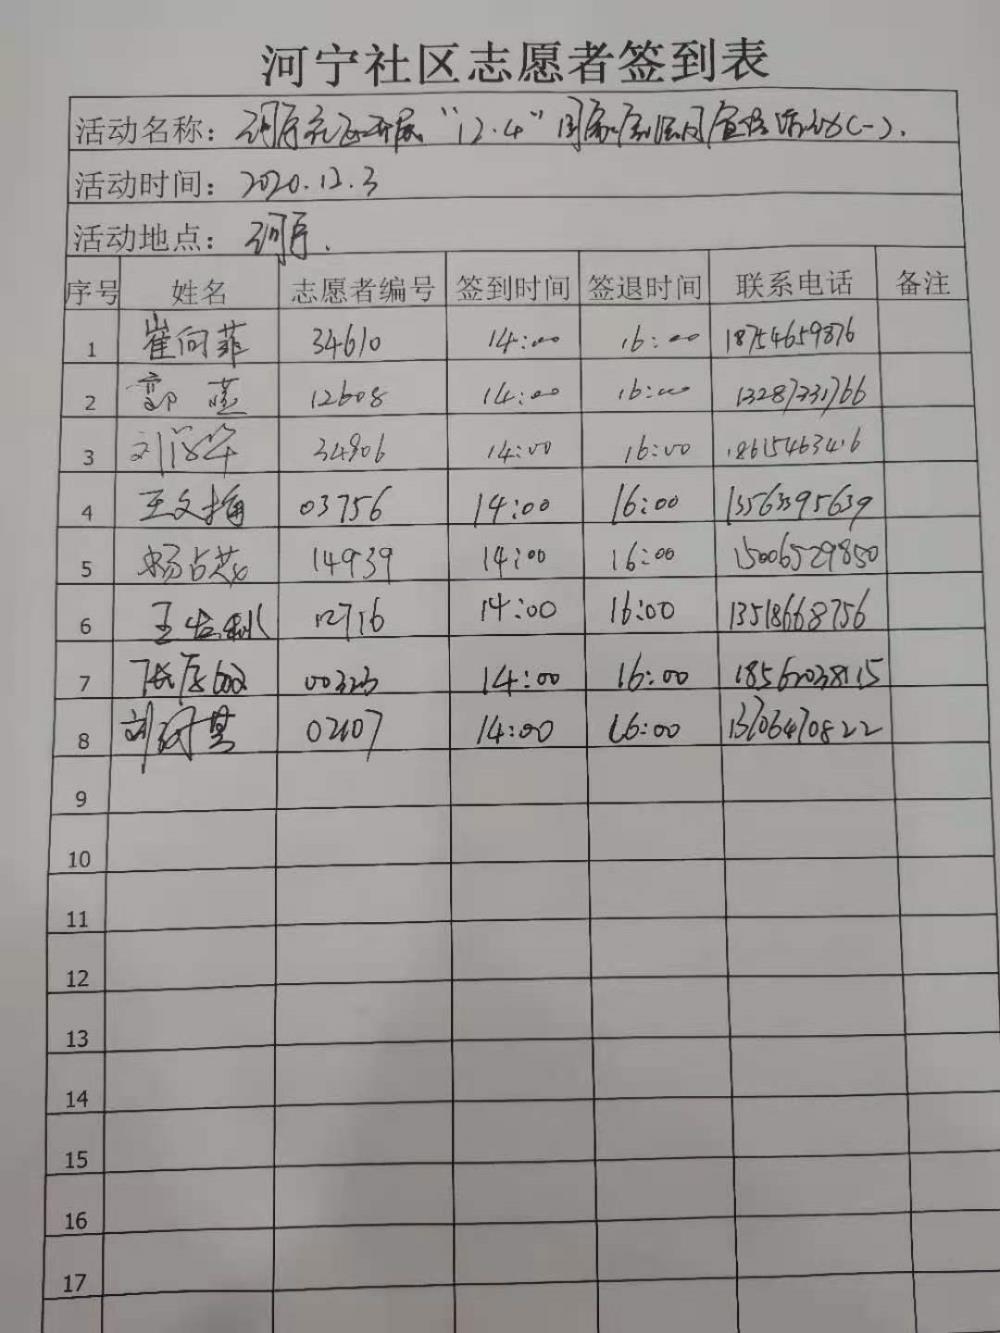 河宁社区志愿者签到表
活动名称：河宁社区开展“12.4”国家宪法日宣传活动(一).
活动时间：2020.12.3
活动地点：河宁.
序号 姓名 志愿者编号 签到时间 签退时间 联系电话 备注
1 崔向菲 34610 14:00 16:00 18754659876
2 郭 12608 14:00 16:00 13287331766
3 刘 34906 14:00 16:00 18615463416
4 王文梅 03756 14:00 16:00 13563395639
5 杨占英 14939 14:00 16:00 15006529850
6 王 12716 14:00 16:00 13518668756
7 张 14:00 16:00 18562038115
8 刘 02107 14:00 16:00 13706470822
9
10
11
12
13
14
15
16
17